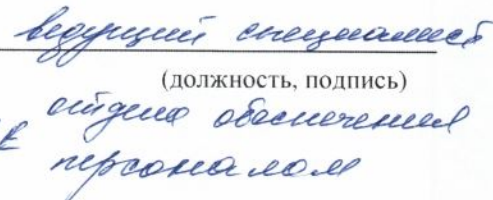 ведущий специалист
(должность, подпись)
отдела обеспечения
персоналом